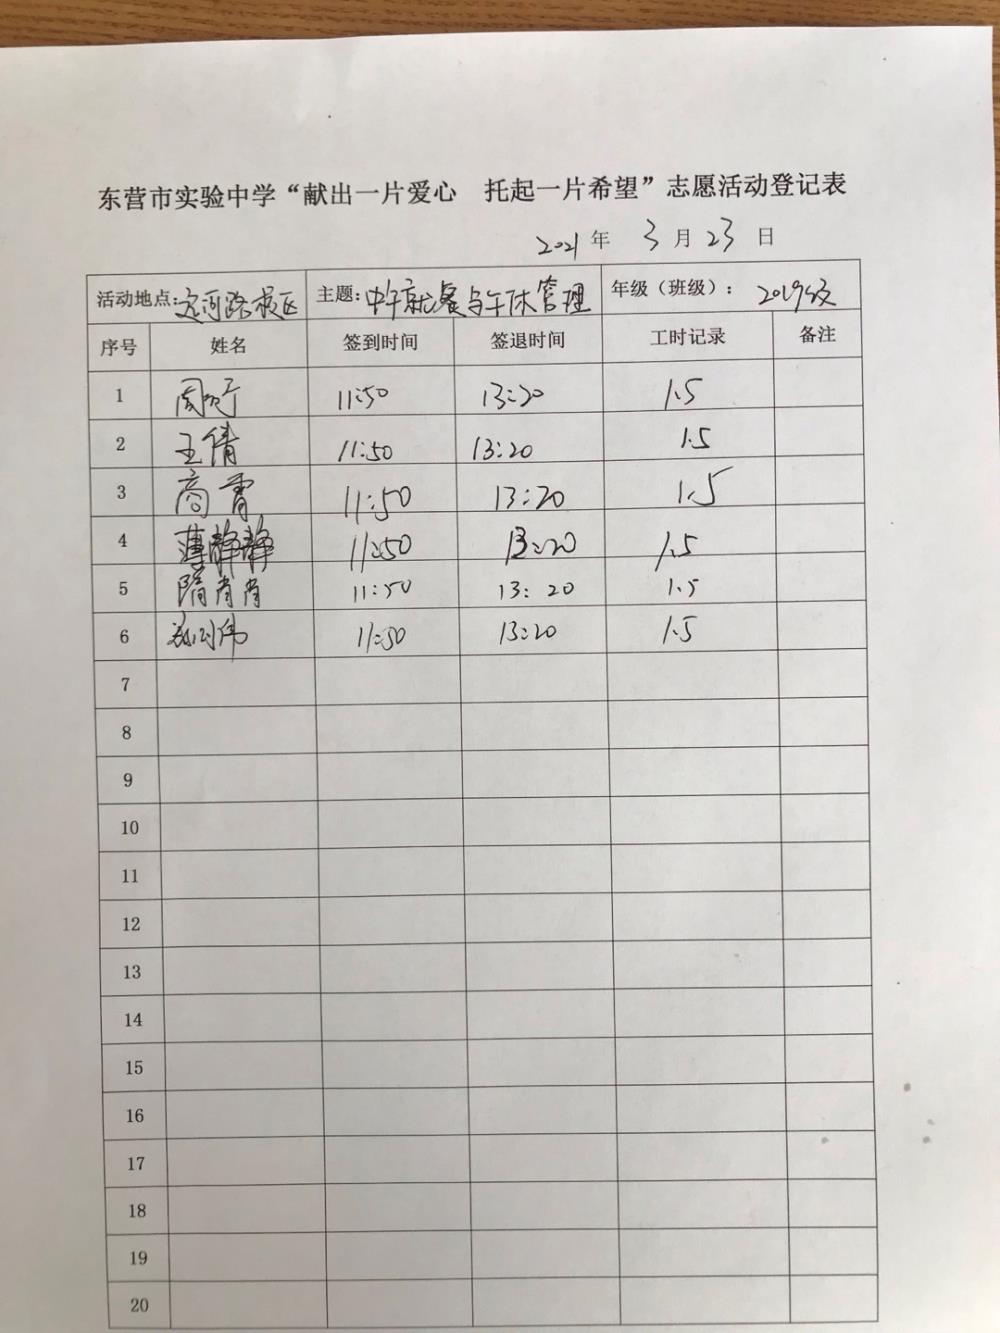 东营市实验中学“献出一片爱心 托起一片希望”志愿活动登记表
2021 年 3 月 23 日
活动地点:运河路校区 主题:中午就餐与午休管理 年级（班级）: 2019级
序号 姓名 签到时间 签退时间 工时记录 备注
1 11:50 13:20 1.5
2 王倩 11:50 13:20 1.5
3 商霄 11:50 13:20 1.5
4 薄静静 11:50 13:20 1.5
5 隋肖肖 11:50 13:20 1.5
6 11:50 13:20 1.5
7
8
9
10
11
12
13
14
15
16
17
18
19
20